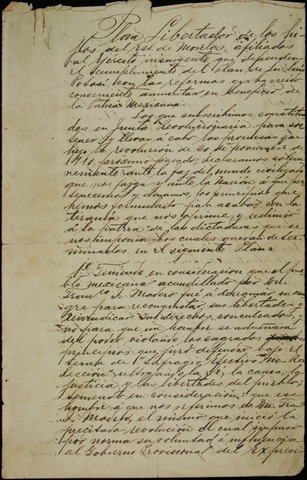 Plan Libertador de los hi-
jos del Est. de Morelos, afiliados
al Ejército insurgente que defienden
el cumplimiento del Plan de San Luis
Potosí con las reformas que ha creido
conveniente aumentar en beneficio de
la Patria Mexicana.
Los que subscribimos, constitui-
dos en Junta Revolucionaria, para sos-
tener y llevar a cabo las promesas que
hizo la revolucion de 20 de Noviembre de
1910, próximo pasado, declaramos solem-
nemente ante la faz del mundo civilizado
que nos juzga y ante la Nacion a que per-
tenecemos y amamos, los principios que
hemos formulado para acabar con la
tiranía que nos oprime y redimir
a la patria de las dictaduras que se
nos imponen los cuales quedan deter-
minados en el siguiente Plan:
1º Teniendo en consideracion que el pue-
blo mexicano acaudillado por Don
Franco. I. Madero fué a derramar su san-
gre para reconquistar sus libertades y
reivindicar sus derechos conculcados, y
no para que un hombre se adueñara
del poder violando los sagrados
principios que juró defender bajo el
lema de "Sufragio Efectivo" "No Ree-
leccion" ultrajando la fé, la causa, la
justicia y las libertades del pueblo;
teniendo en consideracion: que ese
hombre á que nos referimos es Don Fran-
co I. Madero, el mismo que inició la
precitada revolucion el cual impuso
por norma su voluntad e influencia
al Gobierno Provisional del Ex-presi-